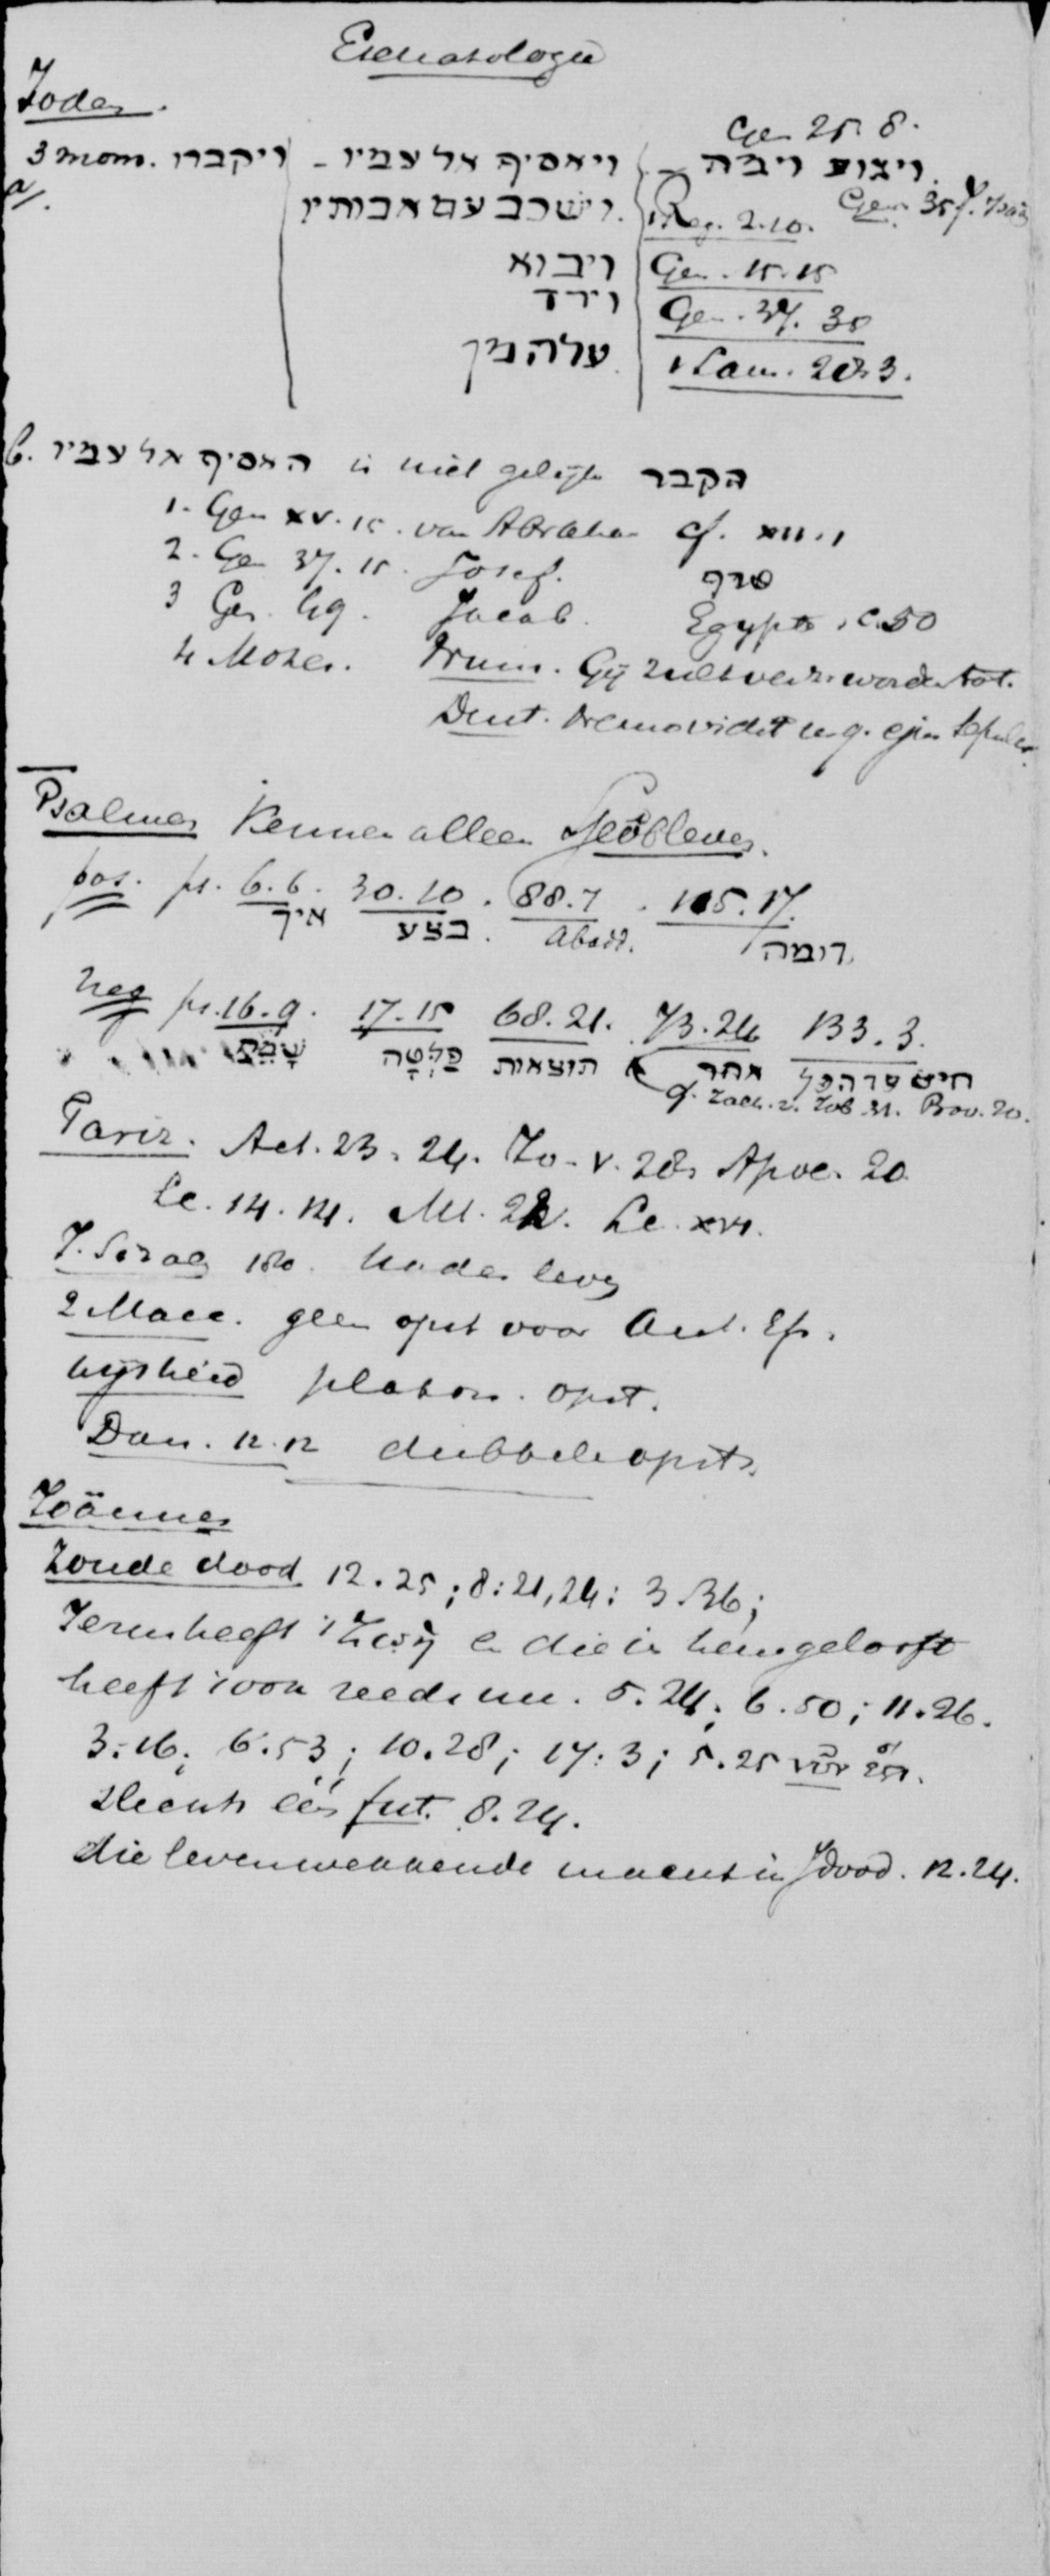 Eschatologie
Joden.
Gen 25. 8.
3 mom. ויקברו | ויאסיף אל עמיו - | ויגוע וימה
a/. וישכב עם אבותיו. | 1 Reg. 2.10. Gen. 35
ויבוא | Gen. 15.15
וירד | Gen. 37. 35
עלה מין | 1 Sam. 28.3.
b. האסיף אל עמיו is niet gelijk הקבר
1. Gen XV. 15. van Abraham cf.
2. Gen 37. 15. Josef. טרף
3 Gen. 49. Jacob. Egypte. c. 50
4 Mozes. Num. Gij zult verz. worden tot.
Deut. nemo vidit
Psalmen kennen alleen Scheoolleven.
pos. ps. 6.6. 30.10. 88.7. 115.17.
איך בצע. Abadd. דומה
neg ps. 16.9. 17.15 68.21. 73.24 133.3.
תוצאות אחר
cf. Zach. Job 31. Prov. 20.
Pariz. Act. 23. 24. Jo. V. 28. Apoc. 20.
Lc. 14. 14. Mt. 22. Lc. XVI.
J. Sirach 180. hades leven
2 Macc. geen opst voor Ant. Ep.
Wijsheid platon. opst.
Dan. 12.12 dubbele opst.
Joännes
Zonde dood 12.25; 8:21,24; 3.36;
Jezus heeft 't ζωή en die in hem gelooft
heeft ook reeds nu. 5.24; 6.50; 11.26.
3:16; 6:53; 10.28; 17:3; 5.25 νῦν ἐστ.
slechts één fut. 8.24.
die levenwekkende macht in J dood. 12.24.